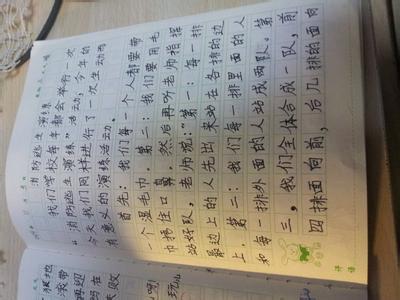 消防逃生演练
我们学校每年都会举行一次
“消防逃生演练”活动，今年的
今天我们同样进行了一次生动而
有意义的演练活动。
首先：我们每一个人都要带
一个湿毛巾。第二：我们要用毛
巾捂住口鼻，然后再听老师指挥
站好队，老师说：“每一排
最边上的人先出来站在各排的边
上，第二：我们每一排里面的人
和每一排外面的人站成两队。第
三，我们全体合成一队，前
四排面向前，后几排的面向
评语
滚带
再迎
失败
玩儿